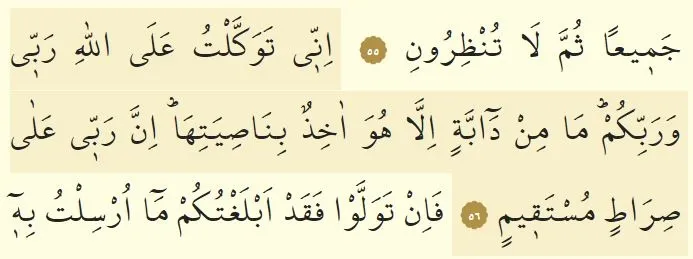 جَمٖيعًا ثُمَّ لَا تُنْظِرُونِ ٥٥ اِنّٖى تَوَكَّلْتُ عَلَى اللّٰهِ رَبّٖى
وَرَبِّكُمْؕ مَا مِنْ دَٓابَّةٍ اِلَّا هُوَ اٰخِذٌ بِنَاصِيَتِهَاؕ اِنَّ رَبّٖى عَلٰى
صِرَاطٍ مُسْتَقٖيمٍ ٥٦ فَاِنْ تَوَلَّوْا فَقَدْ اَبْلَغْتُكُمْ مَٓا اُرْسِلْتُ بِهٖٓ